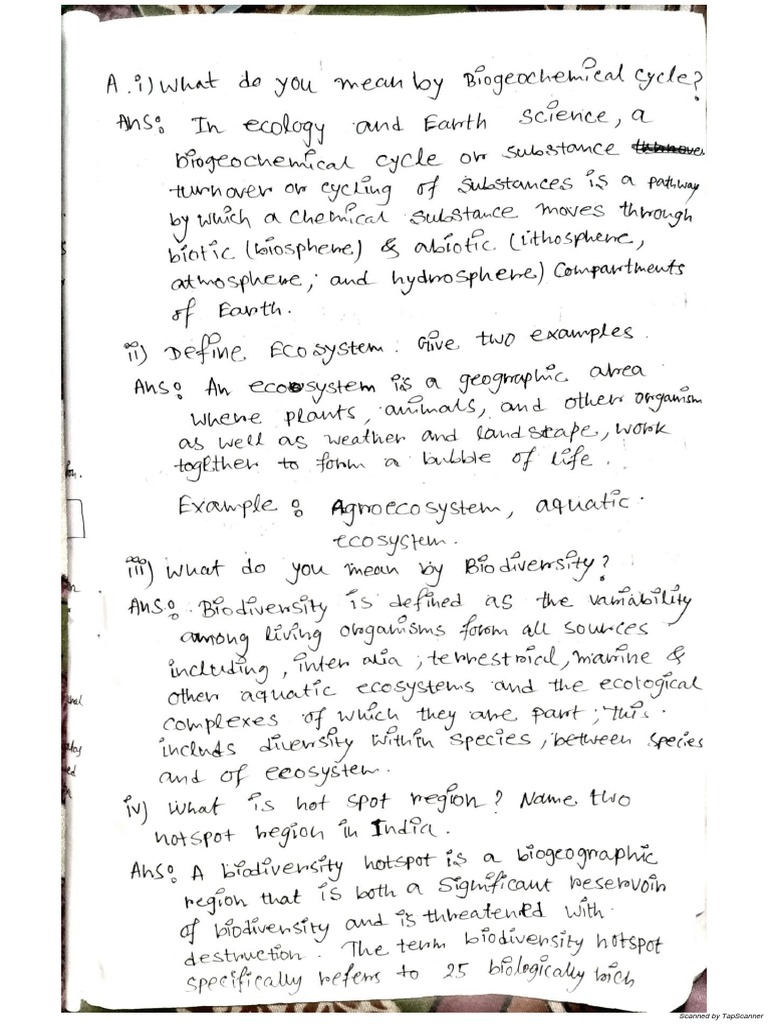 A. i) What do you mean by Biogeochemical cycle?
Ans: In ecology and Earth science, a
biogeochemical cycle or substance
turnover or cycling of substances is a pathway
by which a chemical substance moves through
biotic (biosphere) & abiotic (lithosphere,
atmosphere, and hydrosphere) compartments
of Earth.
ii) Define Ecosystem. Give two examples.
Ans: An ecosystem is a geographic area
where plants, animals, and other organism
as well as weather and landscape, work
together to form a bubble of life.
Example : Agroecosystem, aquatic
ecosystem.
iii) What do you mean by Biodiversity?
Ans: Biodiversity is defined as the variability
among living organisms form all sources
including, inter alia, terrestrical, marine &
other aquatic ecosystems and the ecological
complexes of which they are part; this
includs diversity within species, between species
and of ecosystem.
iv) What is hot spot region? Name two
hotspot region in India.
Ans: A biodiversity hotspot is a biogeographic
region that is both a significant reservoir
of biodiversity and is threatened with
destruction. The term biodiversity hotspot
specifically refers to 25 biologically rich
Scanned by TapScanner